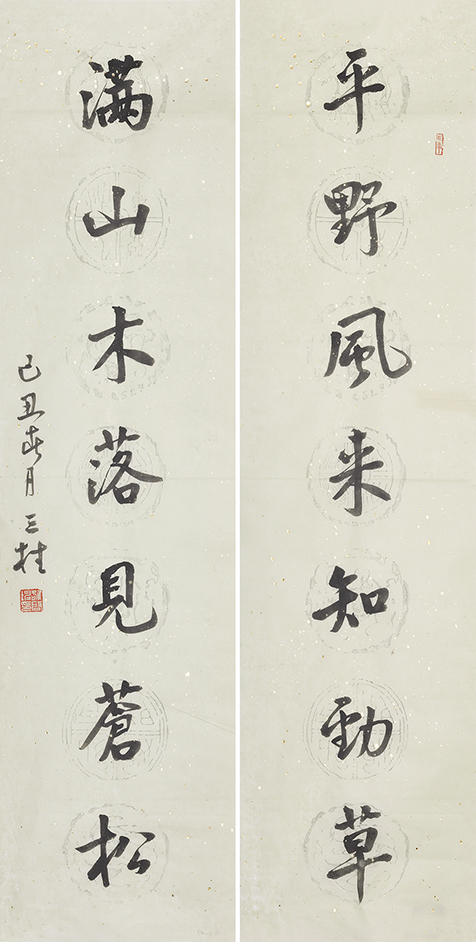 平野風来知勁草
满山木落見蒼松
己丑春月三桂